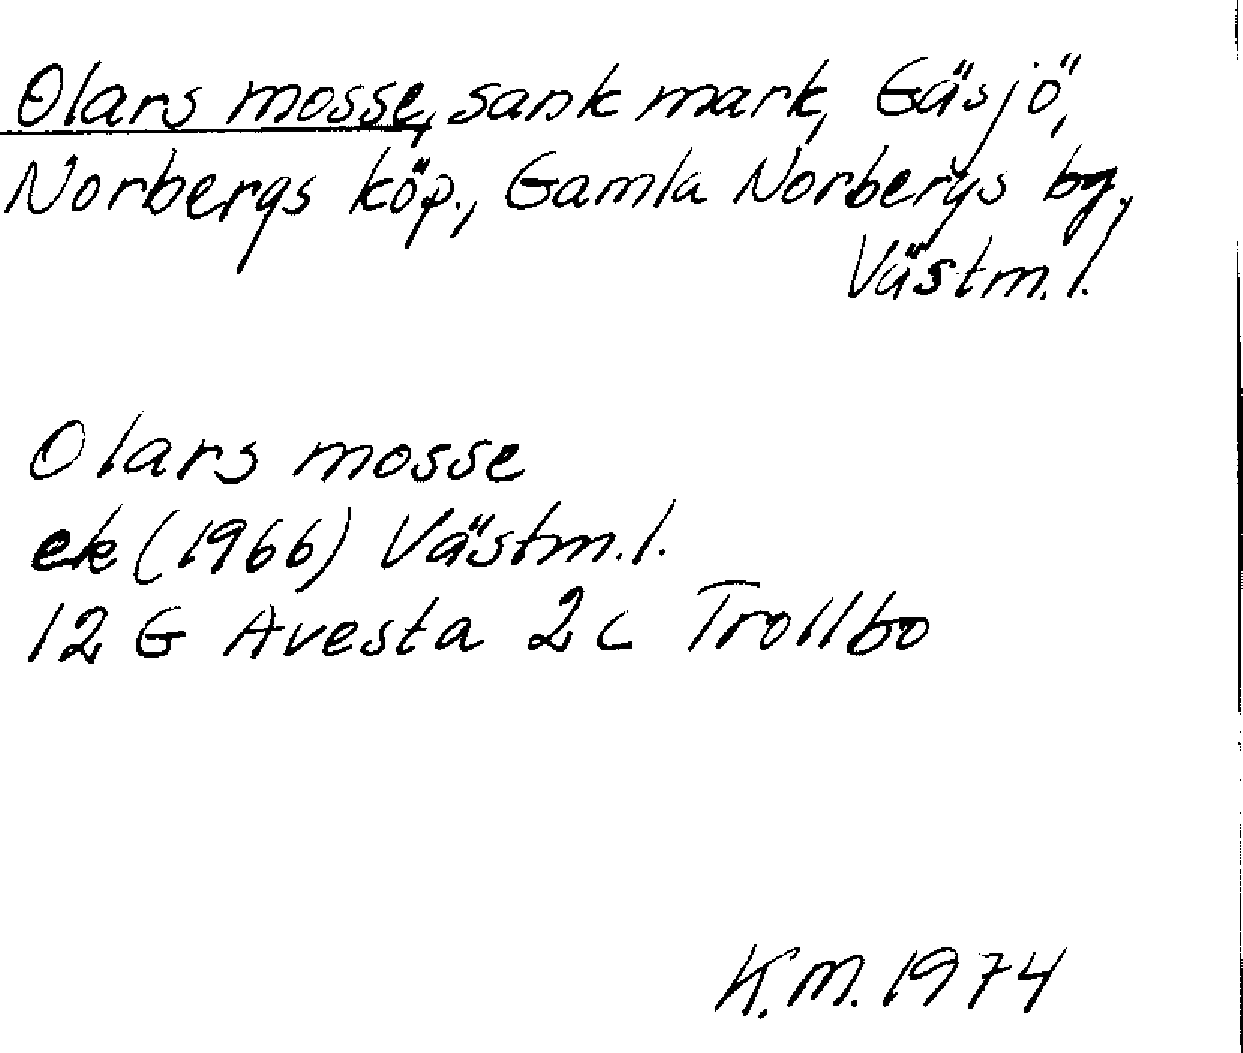 Olars mosse, sank mark, Gäsjö,
Norbergs köp., Gamla Norbergs bg,
Västm. l.
Olars mosse
ek (1966) Västm. l.
12 G Avesta 2 c Trollbo
K.M. 1974